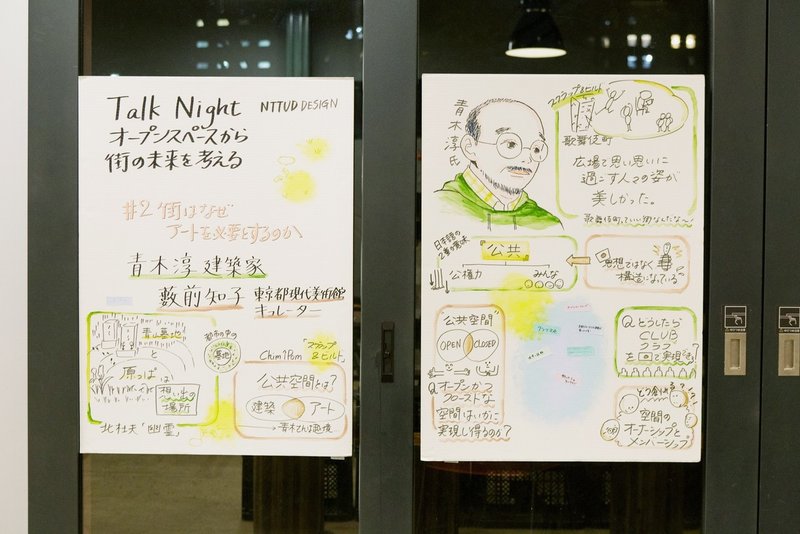 Talk Night NTTUD DESIGN
オープンスペースから
街の未来を考える
#2 街はなぜ
アートを必要とするのか
青木淳 建築家
藪前知子 東京都現代美術館
キュレーター
青山墓地
と
原っぱは
想い出の
場所
北杜夫「幽霊」
都市の中の
墓地
Chim↑Pom
「スクラップ
&ビルド」
公共空間とは?
建築
アート
青木淳氏
スクラップ&ビルド
歌舞伎町
広場で思い思いに
過ごす人々の姿が
美しかった。
歌舞伎町っていい街なんだな〜!
日本語の
2重の意味
公共
公権力
みんな
思想ではなく
構造になっている
"公共空間"
OPEN CLOSED
Q オープンかつ
クローズドな
空間はいかに
実現し得るのか?
Q どうしたら
CLUB
クラブ
どう創る?
空間の
オーナーシップと
メンバーシップ